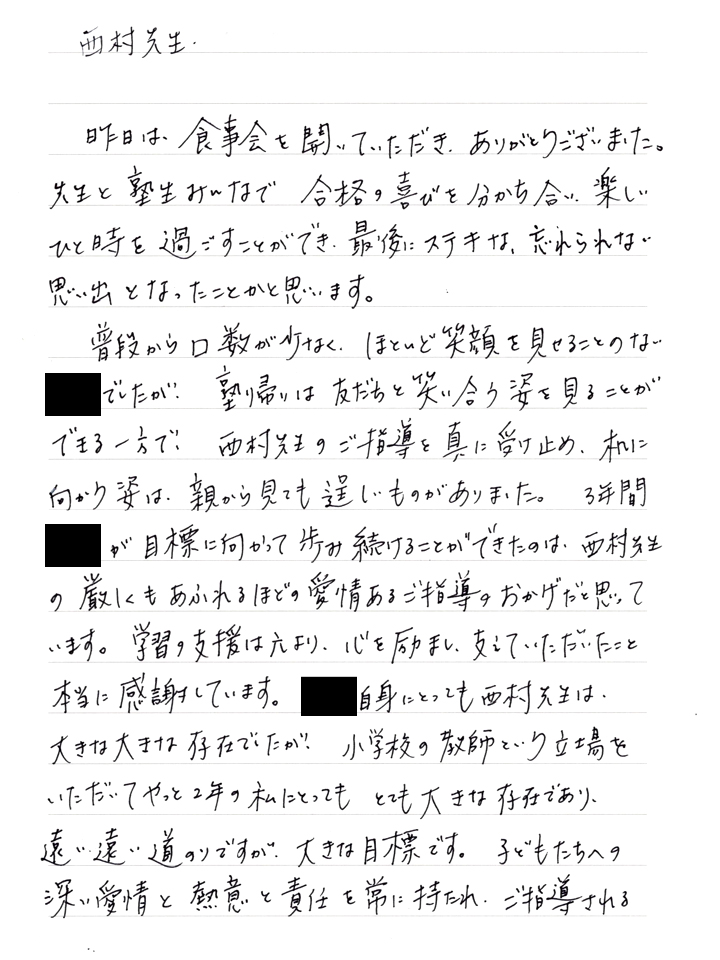 西村先生.
昨日は、食事会を開いていただき、ありがとうございました。
先生と塾生みんなで 合格の喜びを分かち合い、楽しい
ひと時を過ごすことができ、最後にステキな、忘れられない
思い出となったことかと思います。
普段から口数が少なく、ほとんど笑顔を見せることのない
でしたが、塾帰りは友だちと笑い合う姿を見ることが
できる一方で、西村先生のご指導を真に受け止め、机に
向かう姿は、親から見ても逞しいものがありました。 3年間
が目標に向かって歩み続けることができたのは、西村先生
の厳しくもあふれるほどの愛情あるご指導のおかげだと思って
います。学習の支援は元より、心を励まし、支えていただいたこと
本当に感謝しています。 自身にとっても西村先生は、
大きな大きな存在でしたが、小学校の教師という立場を
いただいてやっと2年の私にとっても とても大きな存在であり、
遠い遠い道のりですが、大きな目標です。 子どもたちへの
深い愛情と熱意と責任を常に持たれ、ご指導される